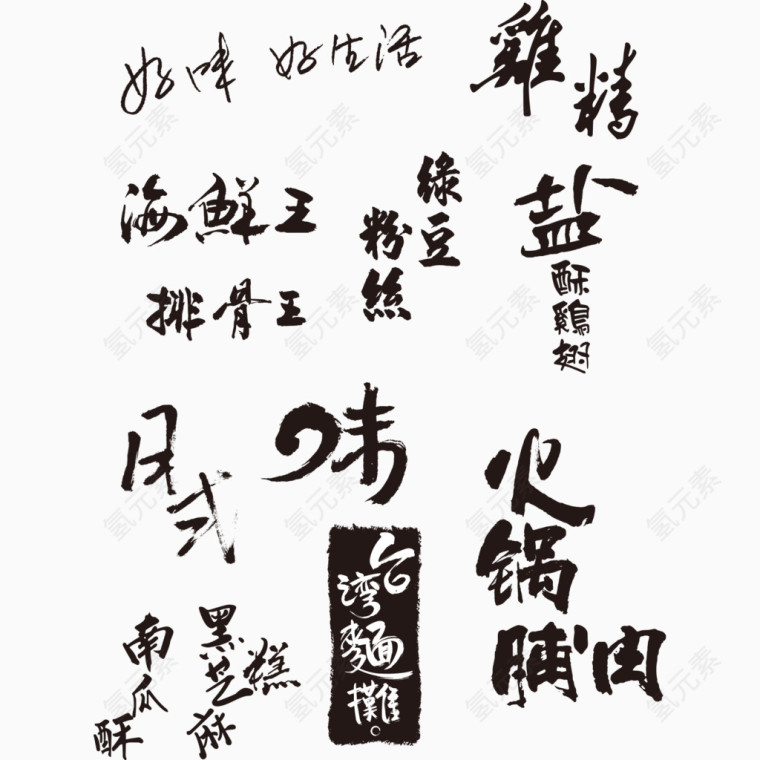 好味
好生活
雞精
海鮮王
排骨王
綠豆
粉絲
盐
酥鷄翅
日式
味
火
锅
脯肉
台
湾
麵
攤。
南瓜酥
黑芝麻
糕
氢元素